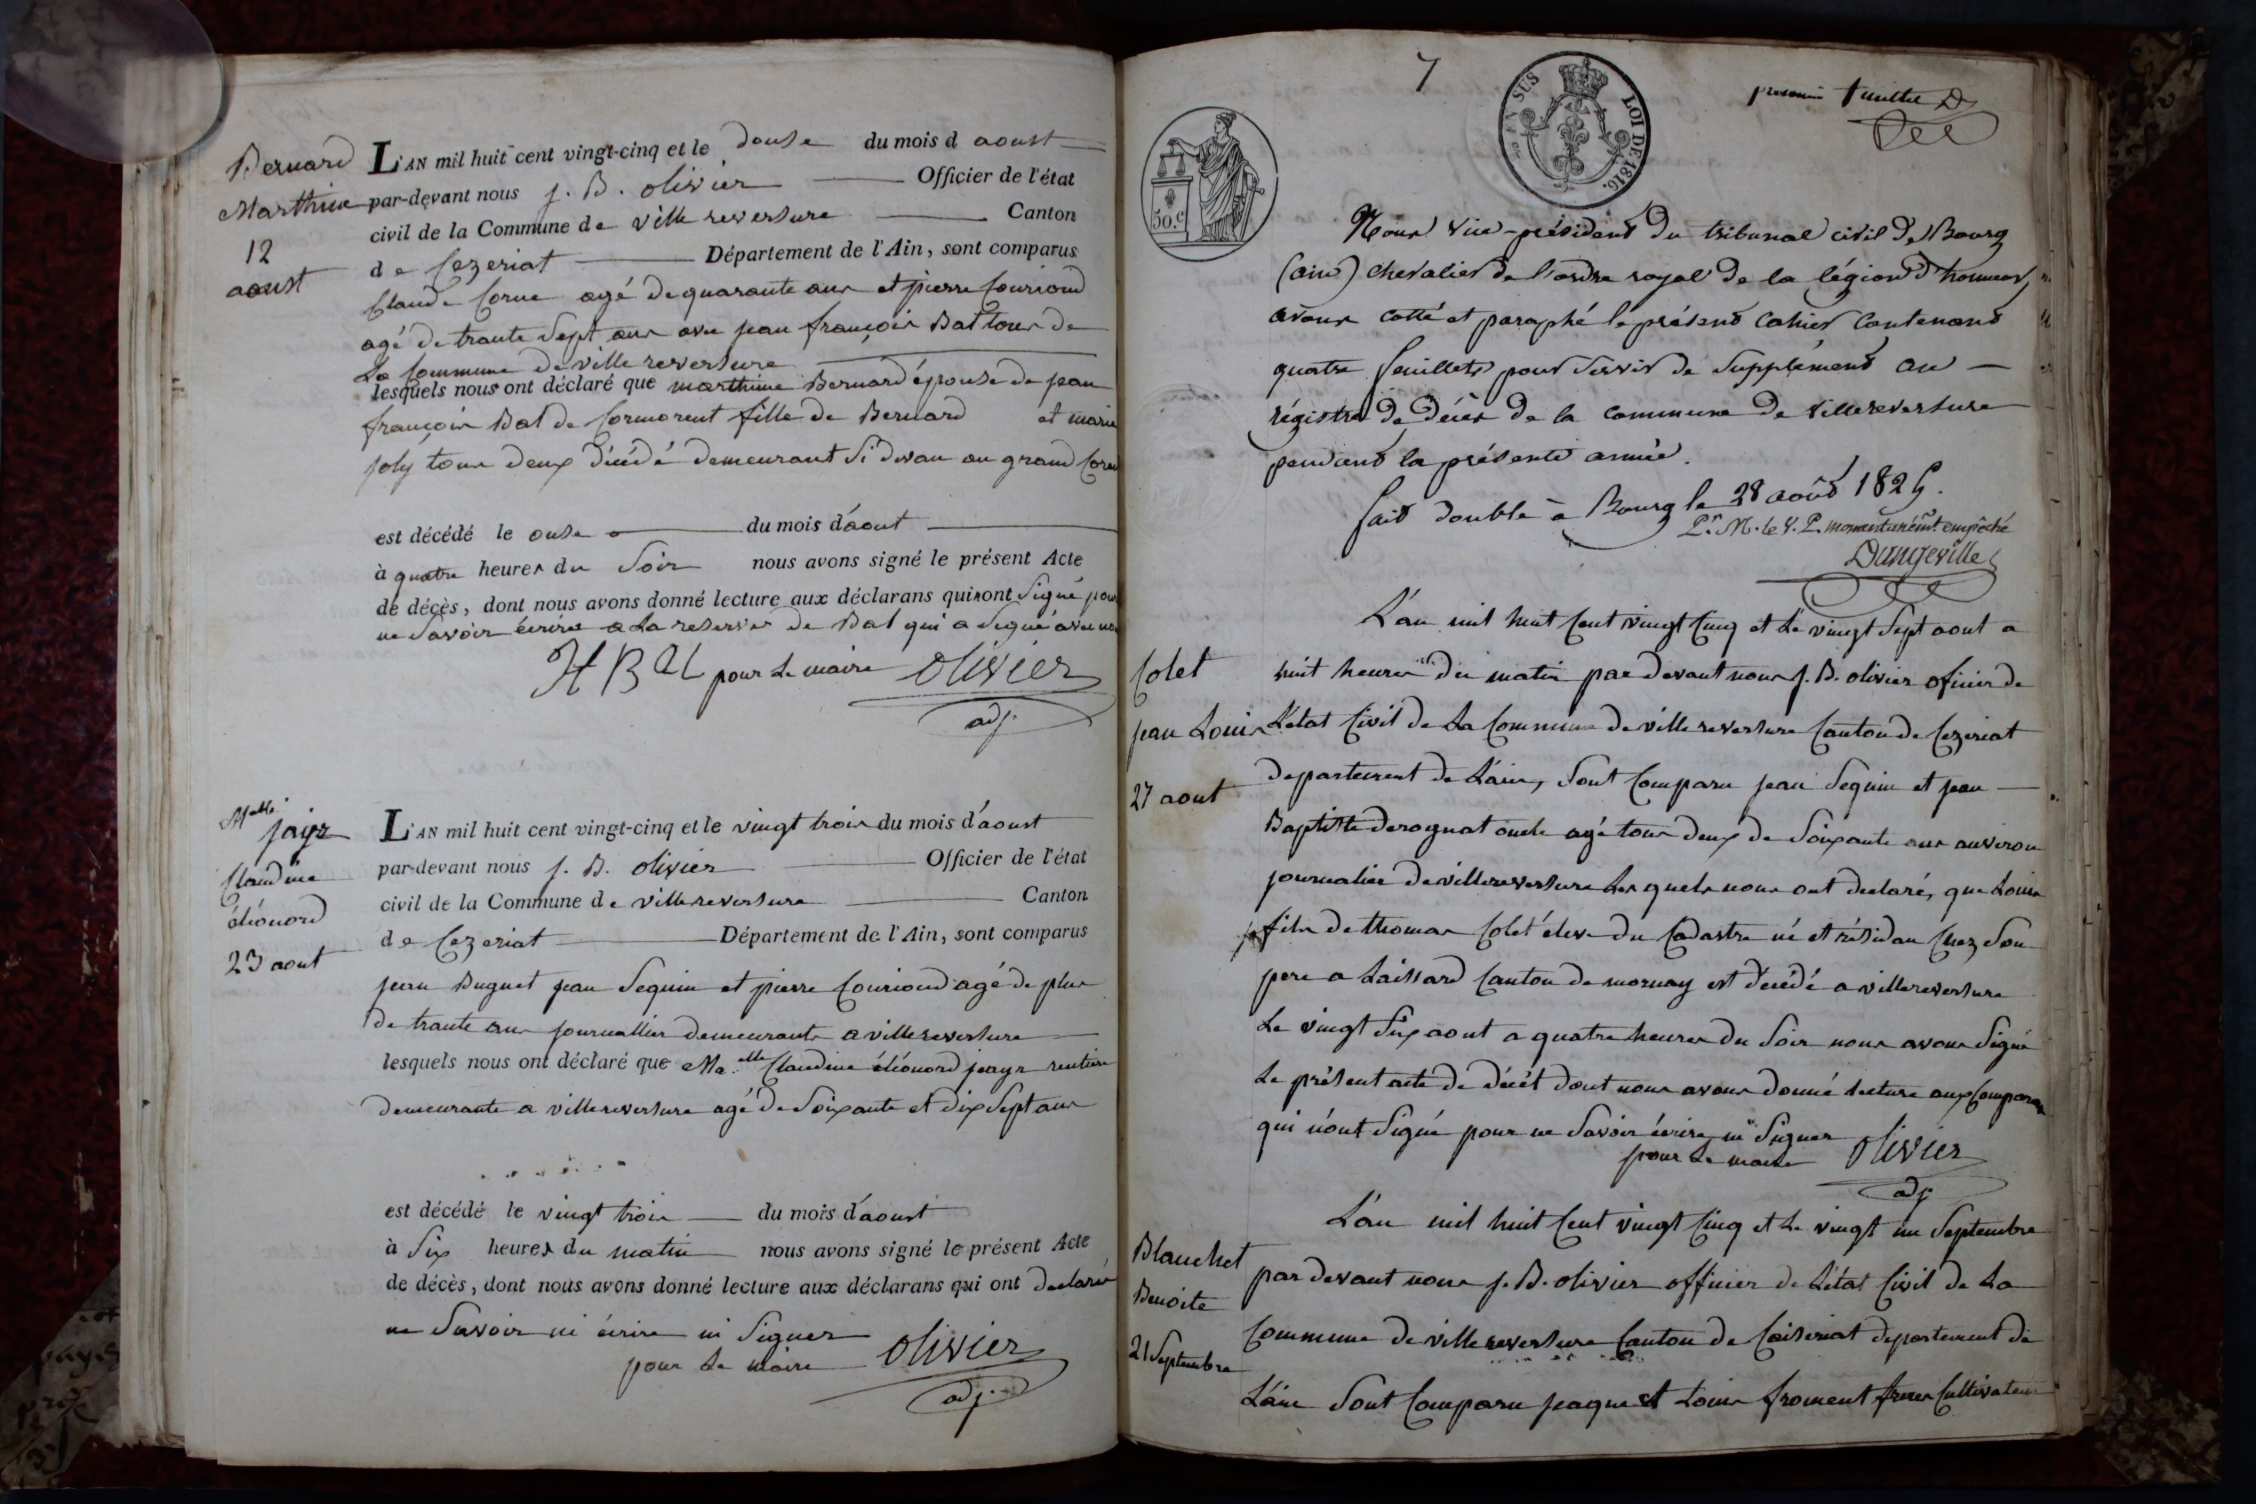 Bernard
Marthine
12
aoust
L'AN mil huit cent vingt-cinq et le douse du mois d aoust
par-devant nous j. B. olivier Officier de l'état
civil de la Commune de ville reversure Canton
de Cezeriat Département de l'Ain, sont comparus
Claude Corne agé de quarante ans et pierre Couriond
agé de trante Sept ans avec jean françois Bal tous de
La Commune de ville reversure
lesquels nous ont déclaré que marthine Bernard épouse de jean
françois Bal de Cormorent fille de Bernard et marie
joly tous deux décédé demeurant si devan au grand
est décédé le onse du mois d'aout
à quatre heures du Soir nous avons signé le présent Acte
de décès, dont nous avons donné lecture aux déclarans qui nont Signé pour
ne Savoir écrire a La reserve de Bal qui a Signé avec nous
pour Le maire olivier
adj.
Melle
jayr
Claudine
éléonord
23 aout
L'AN mil huit cent vingt-cinq et le vingt trois du mois d'aoust
par-devant nous j. B. olivier Officier de l'état
civil de la Commune de ville reversure Canton
de Cezeriat Département de l'Ain, sont comparus
jean Buguet jean Seguin et pierre Couriond agé de plus
de trante ans journallier demeurants a ville reversure
lesquels nous ont déclaré que Ma.elle Claudine éléonord jayr rentiere
demeurante a ville reversure agé de Soixante et dix Sept ans
est décédé le vingt trois du mois d'aoust
à Six heures du matin nous avons signé le présent Acte
de décès, dont nous avons donné lecture aux déclarans qui ont declaré
ne Savoir ni écrire ni Signer
pour Le maire olivier
adj.
7
EN SUS
LOI DE 1816.
50.c
premier feuillet D
Nous vice-président du tribunal civil de Bourg
(ain) chevalier de l'ordre royal de la légion d'honneur,
avons cotté et paraphé le présent cahier contenant
quatre feuillets pour servir de supplément au
régistre de décès de la commune de villereversure
pendant la présente année.
fait double à Bourg le 28 août 1825.
Pr. M. le V. P. momentanémt. empêché
Dangeville
Colet
jean Louis
27 aout
L'an mil huit Cent vingt Cinq et Le vingt Sept aout a
huit heures du matin par devant nous j. B. olivier oficier de
L'état Civil de La Commune de ville reversure Canton de Cezeriat
departement de L'ain, Sont Comparu jean Seguin et jean
Baptiste derognat oncle agé tous deux de Soixante ans anviron
journalier de villereversure Les quels nous ont declaré, que Louis
fils de thomas Colet éleve du Cadastre né et résidan Chez Son
pere a Laissard Canton de mornay est décédé a villereversure
Le vingt Six aout a quatre heures du Soir nous avons Signé
Le présent acte de décét dont nous avons donné lecture aux Comparan
qui n'ont Signé pour ne Savoir écrire ni Signer
pour Le maire olivier
adj
Blanchet
Benoite
21 Septembre
L'an mil huit Cent vingt Cinq et Le vingt un Septembre
par devant nous j. B. olivier officier de L'état Civil de La
Commune de ville reversure Canton de Ceiseriat departement de
L'ain Sont Comparu jaque et Louis froment freres Cultivateur